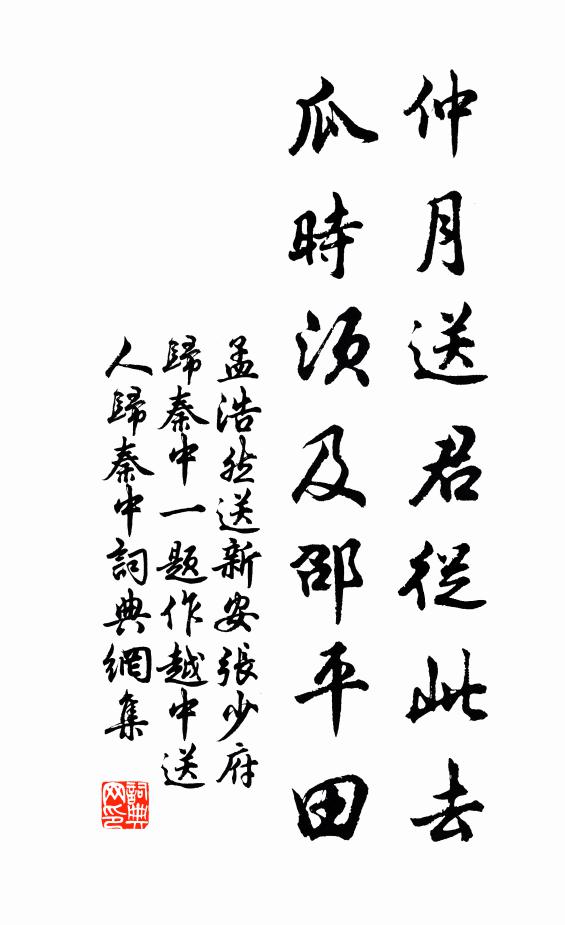 仲月送君從此去
瓜時須及邵平田
孟浩然送新安張少府
歸秦中一題作越中送
人歸秦中詞典網集
詞典
网印